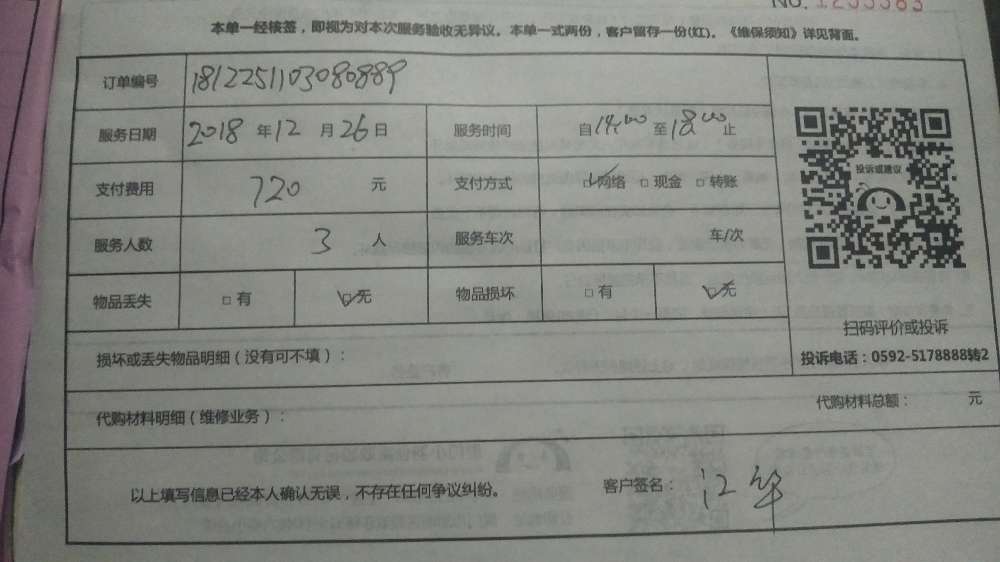 No. 1255583
本单一经核签，即视为对本次服务验收无异议。本单一式两份，客户留存一份(红)。《维保须知》详见背面。
订单编号 1812251103080889
服务日期 2018 年 12 月 26 日 服务时间 自 14:00 至 18:00 止
支付费用 720 元 支付方式 ☑网络 □ 现金 □ 转账
服务人数 3 人 服务车次 车/次
投诉或建议
物品丢失 □ 有 ☑无 物品损坏 □ 有 ☑无
扫码评价或投诉
投诉电话：0592-5178888转2
损坏或丢失物品明细（没有可不填）：
代购材料明细（维修业务）： 代购材料总额： 元
以上填写信息已经本人确认无误，不存在任何争议纠纷。 客户签名： 江华